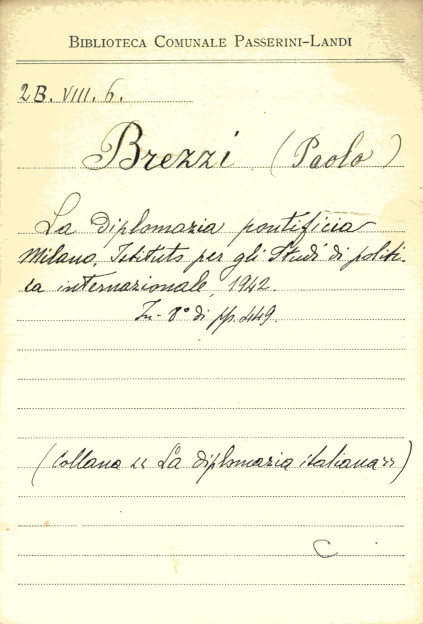 BIBLIOTECA COMUNALE PASSERINI-LANDI
2B. VIII. 6.
Brezzi (Paolo)
La diplomazia pontificia
Milano, Istituto per gli Studi di politi-
ca internazionale, 1942.
In-8° di pp. 449.
(Collana «La diplomazia italiana»)
C